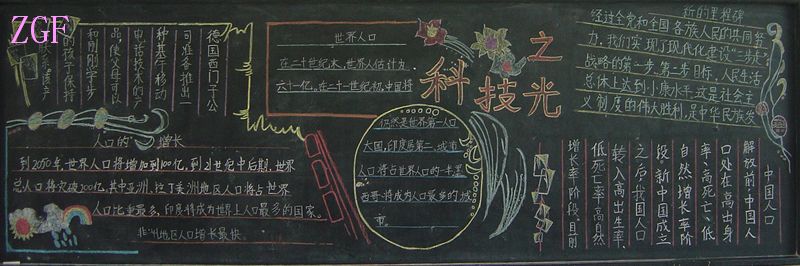 ZGF
德国西门子公
司准备推出一
种基于移动
电话技术的产
品，使父母可以
和刚刚学步
的孩子保持
联系该产
世界人口
在二十世纪末，世界人估计为
六十一亿。在二十一世纪初，中国将
仍然是世界第一人口
大国，印度居第二，城市
人口将占世界人口的一半，墨
西哥将成为人口最多的城
市。
科技之光
新的里程碑
经过全党和全国各族人民的共同努
力，我们实现了现代化建设"三步走"
战略的第一步、第二步目标，人民生活
总体上达到小康水平，这是社会主
义制度的伟大胜利，是中华民族发
人口的增长
到2050年，世界人口将增加到100亿，到21世纪中后期，世界
总人口将突破200亿，其中亚洲、拉丁美洲地区人口将占世界
人口比重最多，印度将成为世界上人口最多的国家。
非洲地区人口增长最快。
中国人口
解放前，中国人
口处在高出身
率、高死亡、低
自然增长率阶
段，新中国成立
之后，我国人口
转入高出生率、
低死亡率高自然
增长率阶段，目前